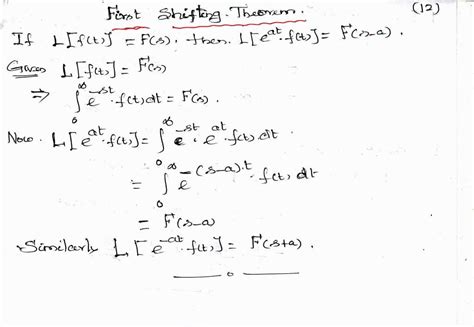 First Shifting Theorem. (12)
If L[f(t)] = F(s). then. L[e^{at}·f(t)] = F(s-a).
Given L[f(t)] = F(s)
⇒ ∫_0^∞ e^{-st}·f(t)dt = F(s).
Now. L[e^{at}·f(t)] = ∫_0^∞ e^{-st}·e^{at}·f(t)dt
= ∫_0^∞ e^{-(s-a)·t}·f(t)dt
= F(s-a)
Similarly L[e^{-at}·f(t)] = F(s+a).